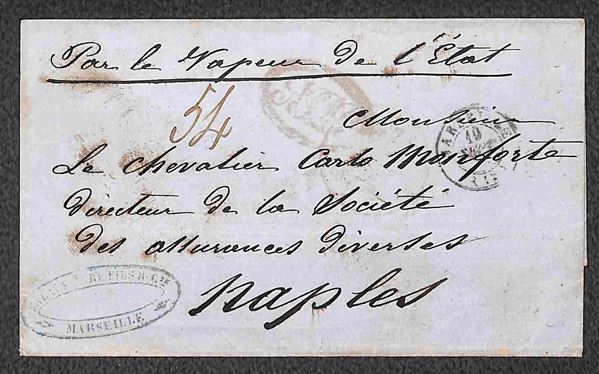 Par le Vapeur de l'État
54
Monsieur
Le Chevalier Carlo Monforte
directeur de la Société
des assurances diverses
Naples
19
SEPT
FILS & Cie
MARSEILLE